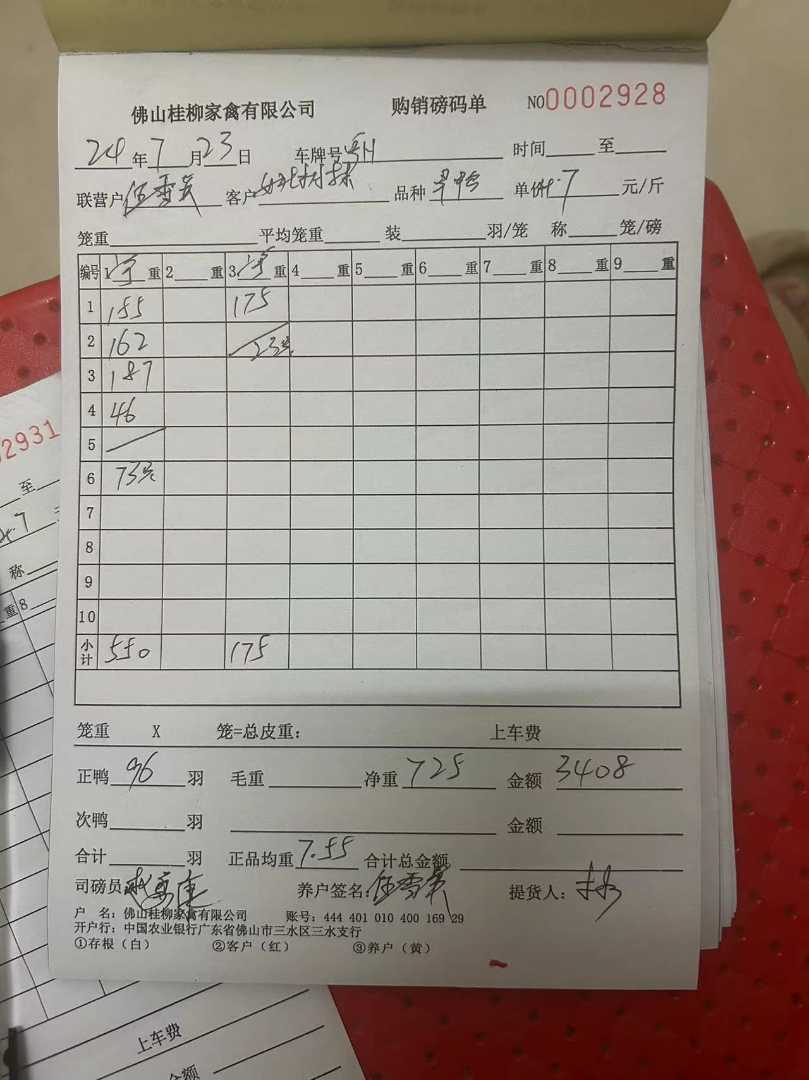 佛山桂柳家禽有限公司 购销磅码单 NO0002928
24年7月23日 车牌号粤H 时间 至
联营户伍雪英 客户 品种旱鸭 单价4.7元/斤
笼重 平均笼重 装 羽/笼 称 笼/磅
编号 1 重 2 重 3 重 4 重 5 重 6 重 7 重 8 重 9 重
1 185 175
2 162 23只
3 187
4 46
5
6 73只
7
8
9
10
小计 550 175
笼重 X 笼=总皮重: 上车费
正鸭96羽 毛重 净重725 金额3408
次鸭 羽 金额
合计 羽 正品均重7.55 合计总金额
司磅员 养户签名:伍雪英 提货人:
户 名:佛山桂柳家禽有限公司 账号:444 401 010 400 169 29
开户行:中国农业银行广东省佛山市三水区三水支行
①存根(白) ②客户(红) ③养户(黄)
02931
至
4.7
称
重 8
上车费
金额